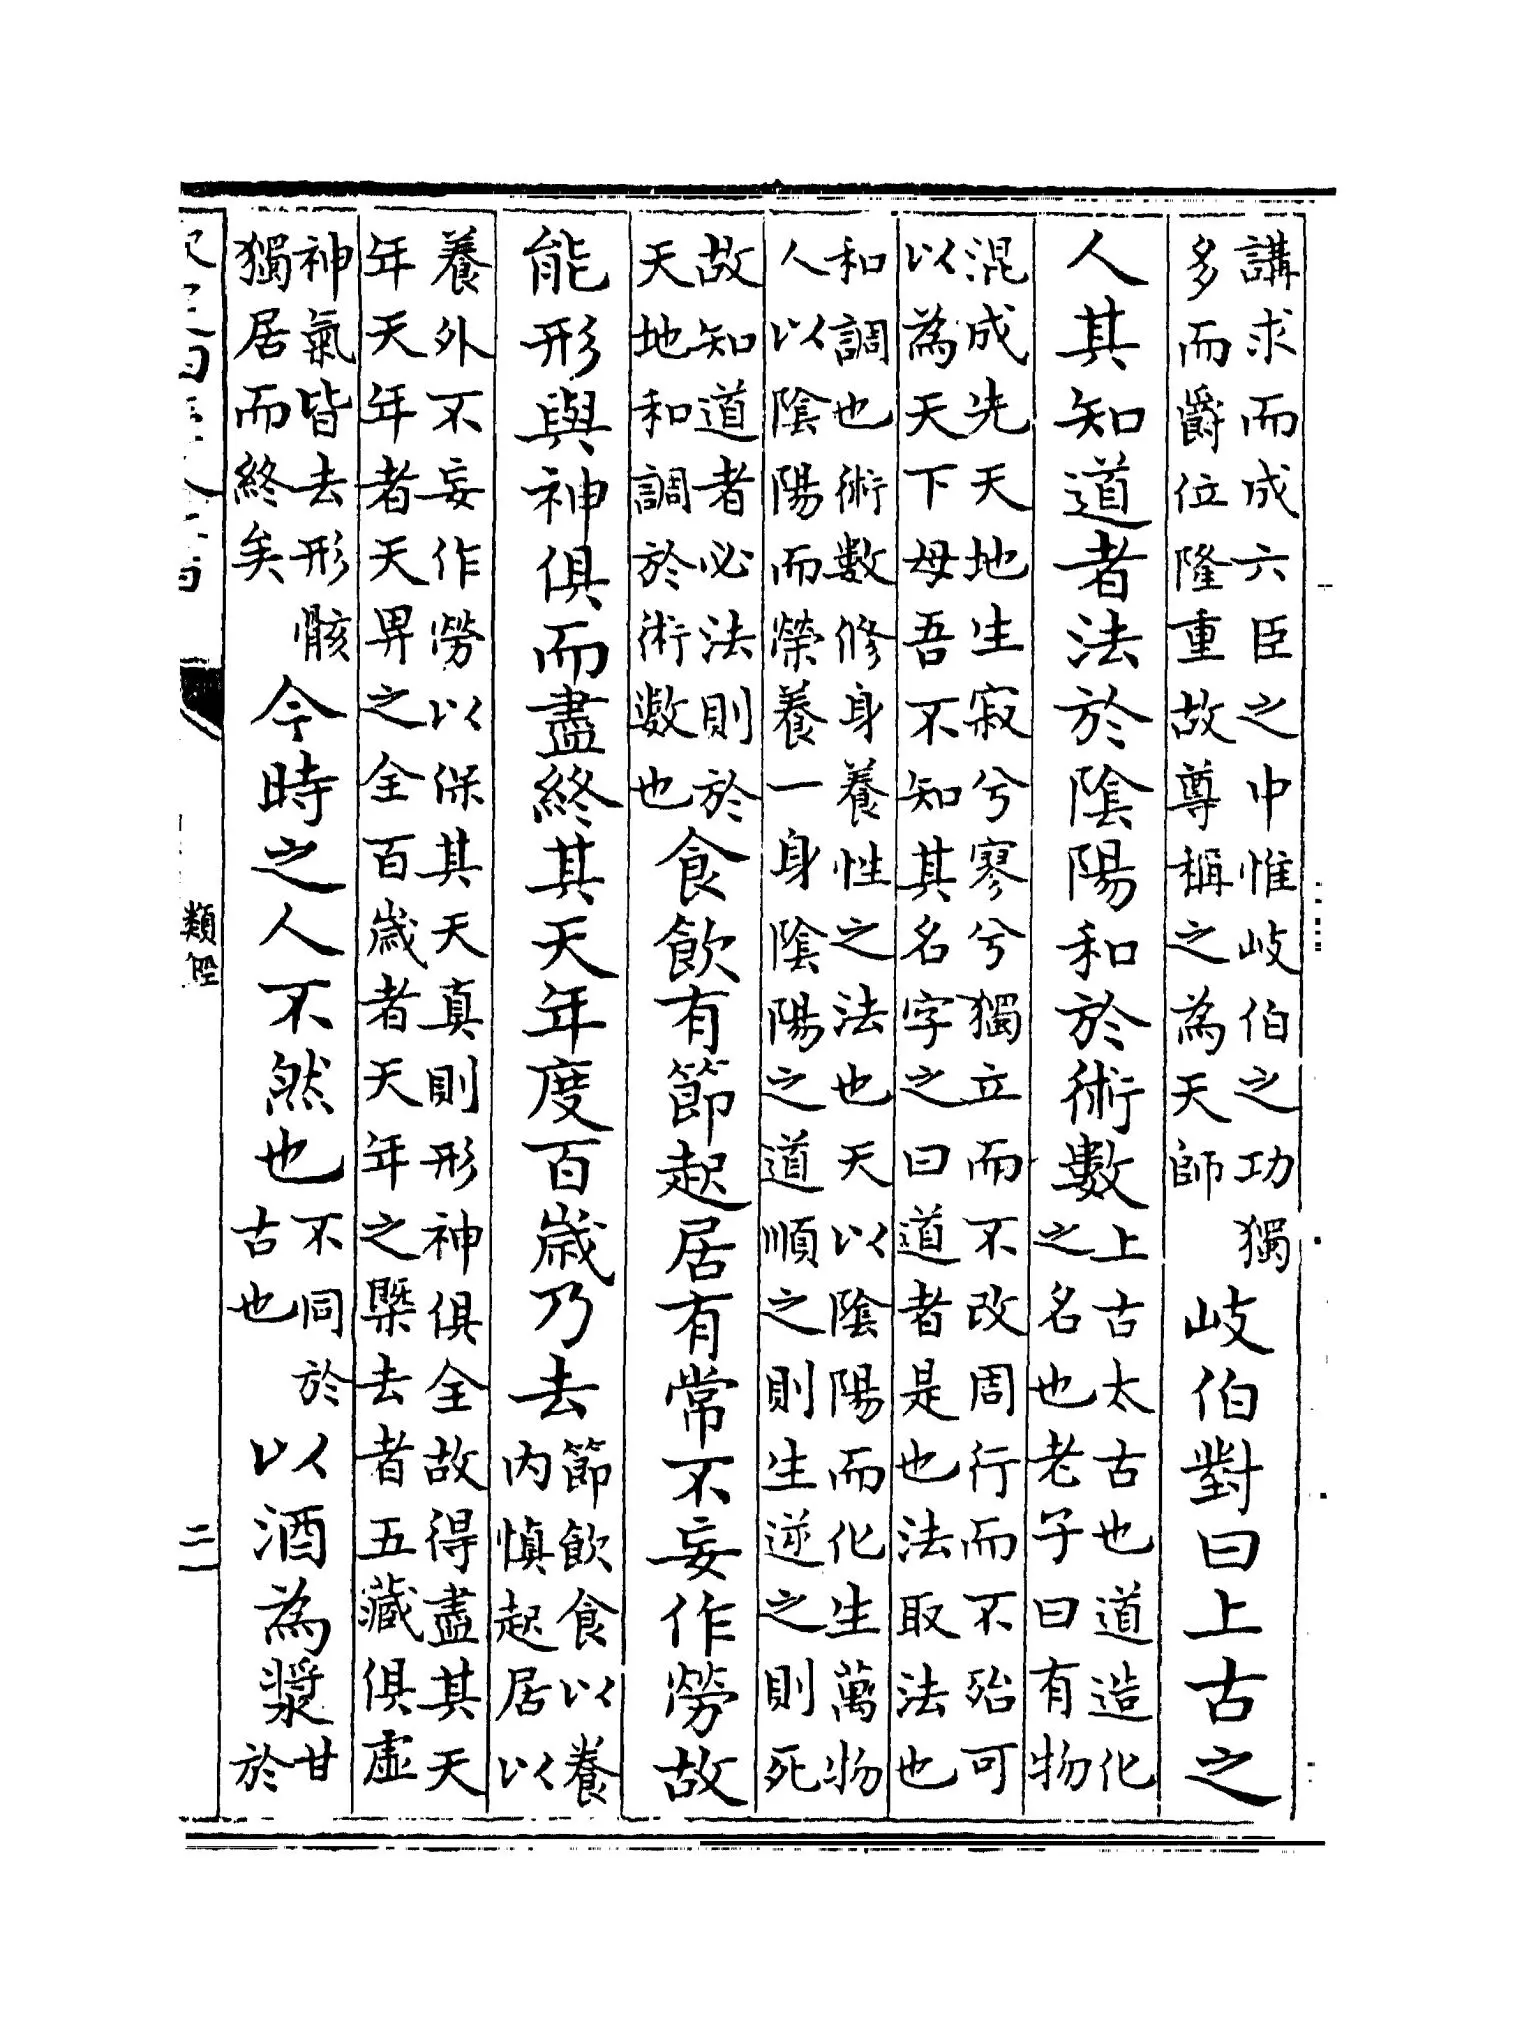 講求而成六臣之中惟岐伯之功獨
多而爵位隆重故尊稱之為天師
岐伯對曰上古之
人其知道者法於陰陽和於術數
上古太古也道造化
之名也老子曰有物
混成先天地生寂兮寥兮獨立而不改周行而不殆可
以為天下母吾不知其名字之曰道者是也法取法也
和調也術數修身養性之法也天以陰陽而化生萬物
人以陰陽而榮養一身陰陽之道順之則生逆之則死
故知道者必法則於
天地和調於術數也
食飲有節起居有常不妄作勞故
能形與神俱而盡終其天年度百歲乃去
節飲食以養
內慎起居以
養外不妄作勞以保其天真則形神俱全故得盡其天
年天年者天畀之全百歲者天年之槩去者五藏俱虛
神氣皆去形骸
獨居而終矣
今時之人不然也
不同於
古也
以酒為漿
甘
於
類經
二